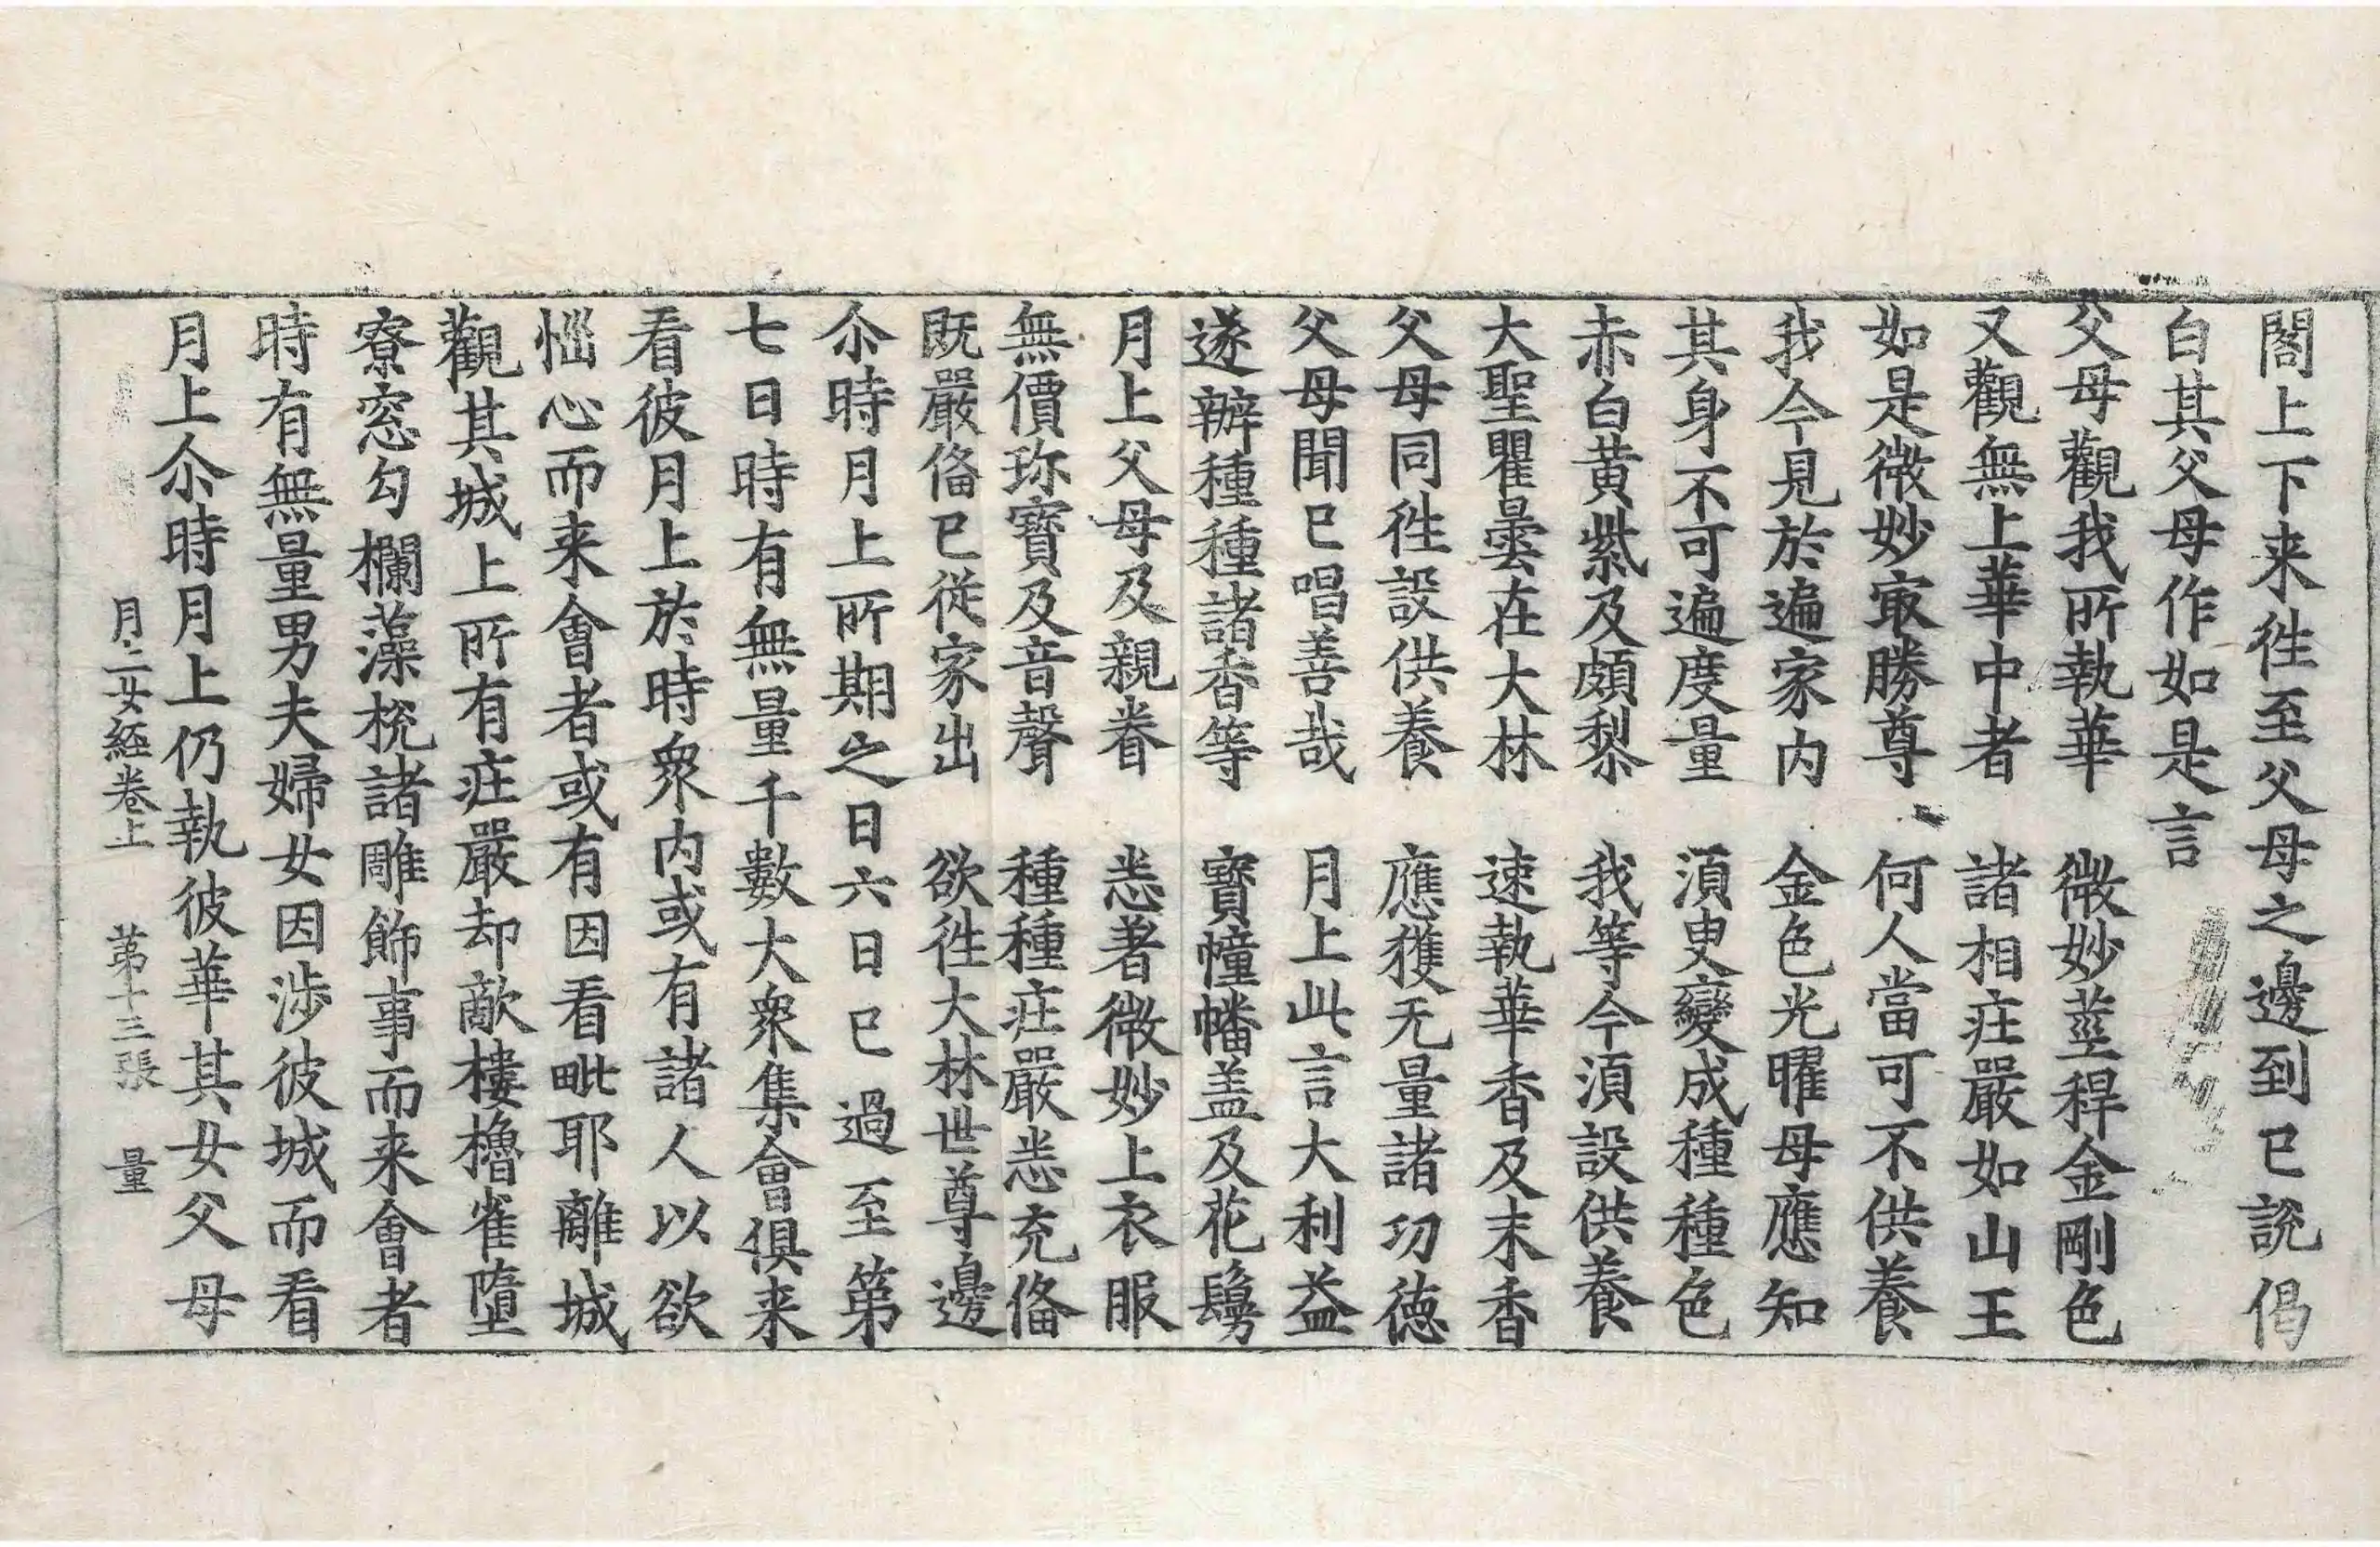 閣上下来徃至父母之邊到已說偈
白其父母作如是言
父母觀我所執華　微妙莖稈金剛色
又觀無上華中者　諸相庄嚴如山王
如是微妙㝡勝尊　何人當可不供養
我今見於遍家内　金色光曜母應知
其身不可遍度量　湏臾變成種種色
赤白黃紫及頗黎　我等今湏設供養
大聖瞿曇在大林　速執華香及末香
父母同徃設供養　應獲无量諸㓛徳
父母聞已唱善哉　月上此言大利益
遂辦種種諸香等　寶幢幡盖及花鬘
月上父母及親眷　悉著微妙上衣服
無價珎寶及音聲　種種庄嚴悉充俻
既嚴俻已從家出　欲徃大林世尊邊
尒時月上所期之日六日已過至第
七日時有無量千數大衆集會俱来
看彼月上於時衆内或有諸人以欲
惱心而来會者或有因看毗耶離城
觀其城上所有庄嚴却敵樓櫓雀墮
寮窓勾欄藻梲諸雕飾事而来會者
時有無量男夫婦女因涉彼城而看
月上尒時月上仍執彼華其女父母
月上女経卷上　第十三張　量